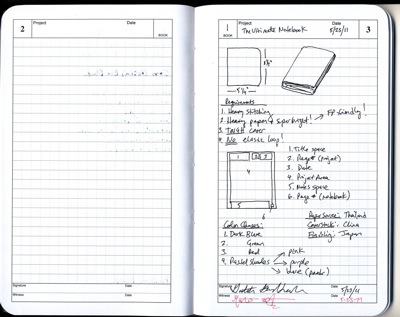 2
Project
Date
BOOK
Signature
Date
Witness
Date
1
BOOK
Project
The Ultimate Notebook
Date
5/23/11
3
Requirements
1. Heavy Stitching
2. Heavy paper & super bright! → FP friendly!
3. Tough cover
4. No elastic loop!
1
2
3
4
5
6
1. Title space
2. Page # (Project)
3. Date
4. Project Area
5. Notes space
6. Page # (Notebook)
Color Choices:
1. Dark Blue
2. Green
3. Red
4. Pastel Shades → pink
→ purple
→ blue
Paper Source: Thailand
Construction: China
Finishing: Japan
Signature
Date
5/23/11
Witness
Date